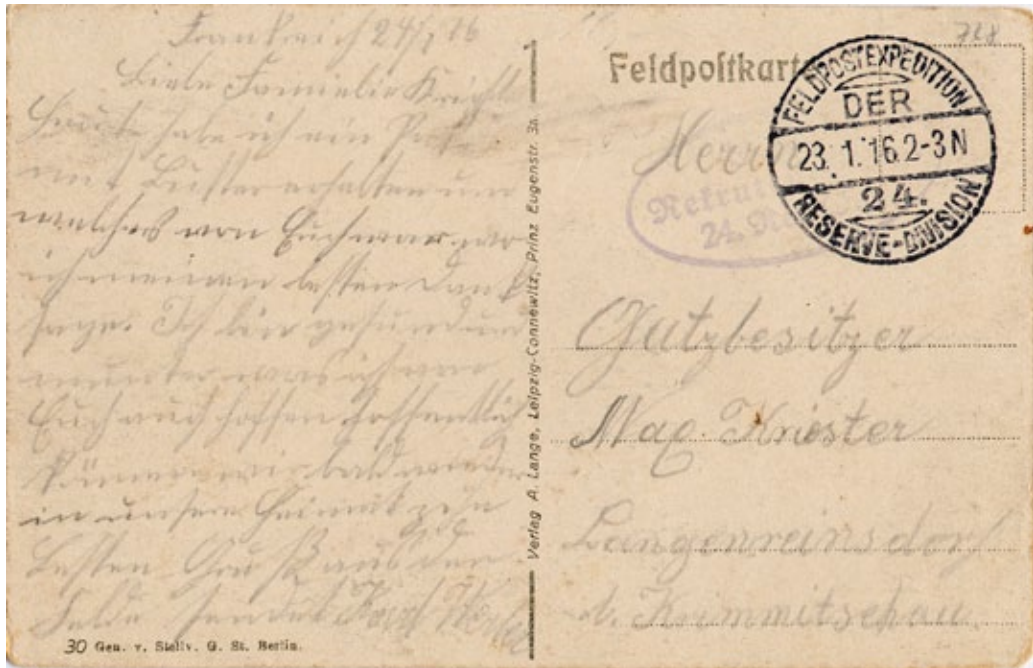 Frankreich 24/1 16
Liebe Familie
Heute habe ich ein
mit Butter erhalten
welches von Euch war wo
ich meinen besten Dank
sage. Ich bin gesund und
munter was ich von
Euch auch hoffen hoffentlich
können wir bald wieder
in unsere Heimat
Besten Gruß aus dem
Felde sendet
30 Gen. v. Stellv. G. St. Berlin.
Verlag A. Lange, Leipzig-Connewitz, Prinz Eugenstr. 3a.
Feldpostkarte
718
FELDPOSTEXPEDITION
DER
23. 1. 16. 2-3 N
24.
RESERVE-DIVISION
Herrn
Rekrut
24. Re
Gutzbesitzer
Mag. Kriester
Langenreinsdorf
b. Krimmitschau.